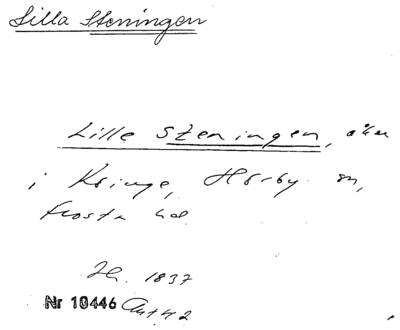 Lilla Steningen
Lille Steningen, åker
i Kringe, Hörby sn,
Frosta hd
1837
Nr 10446